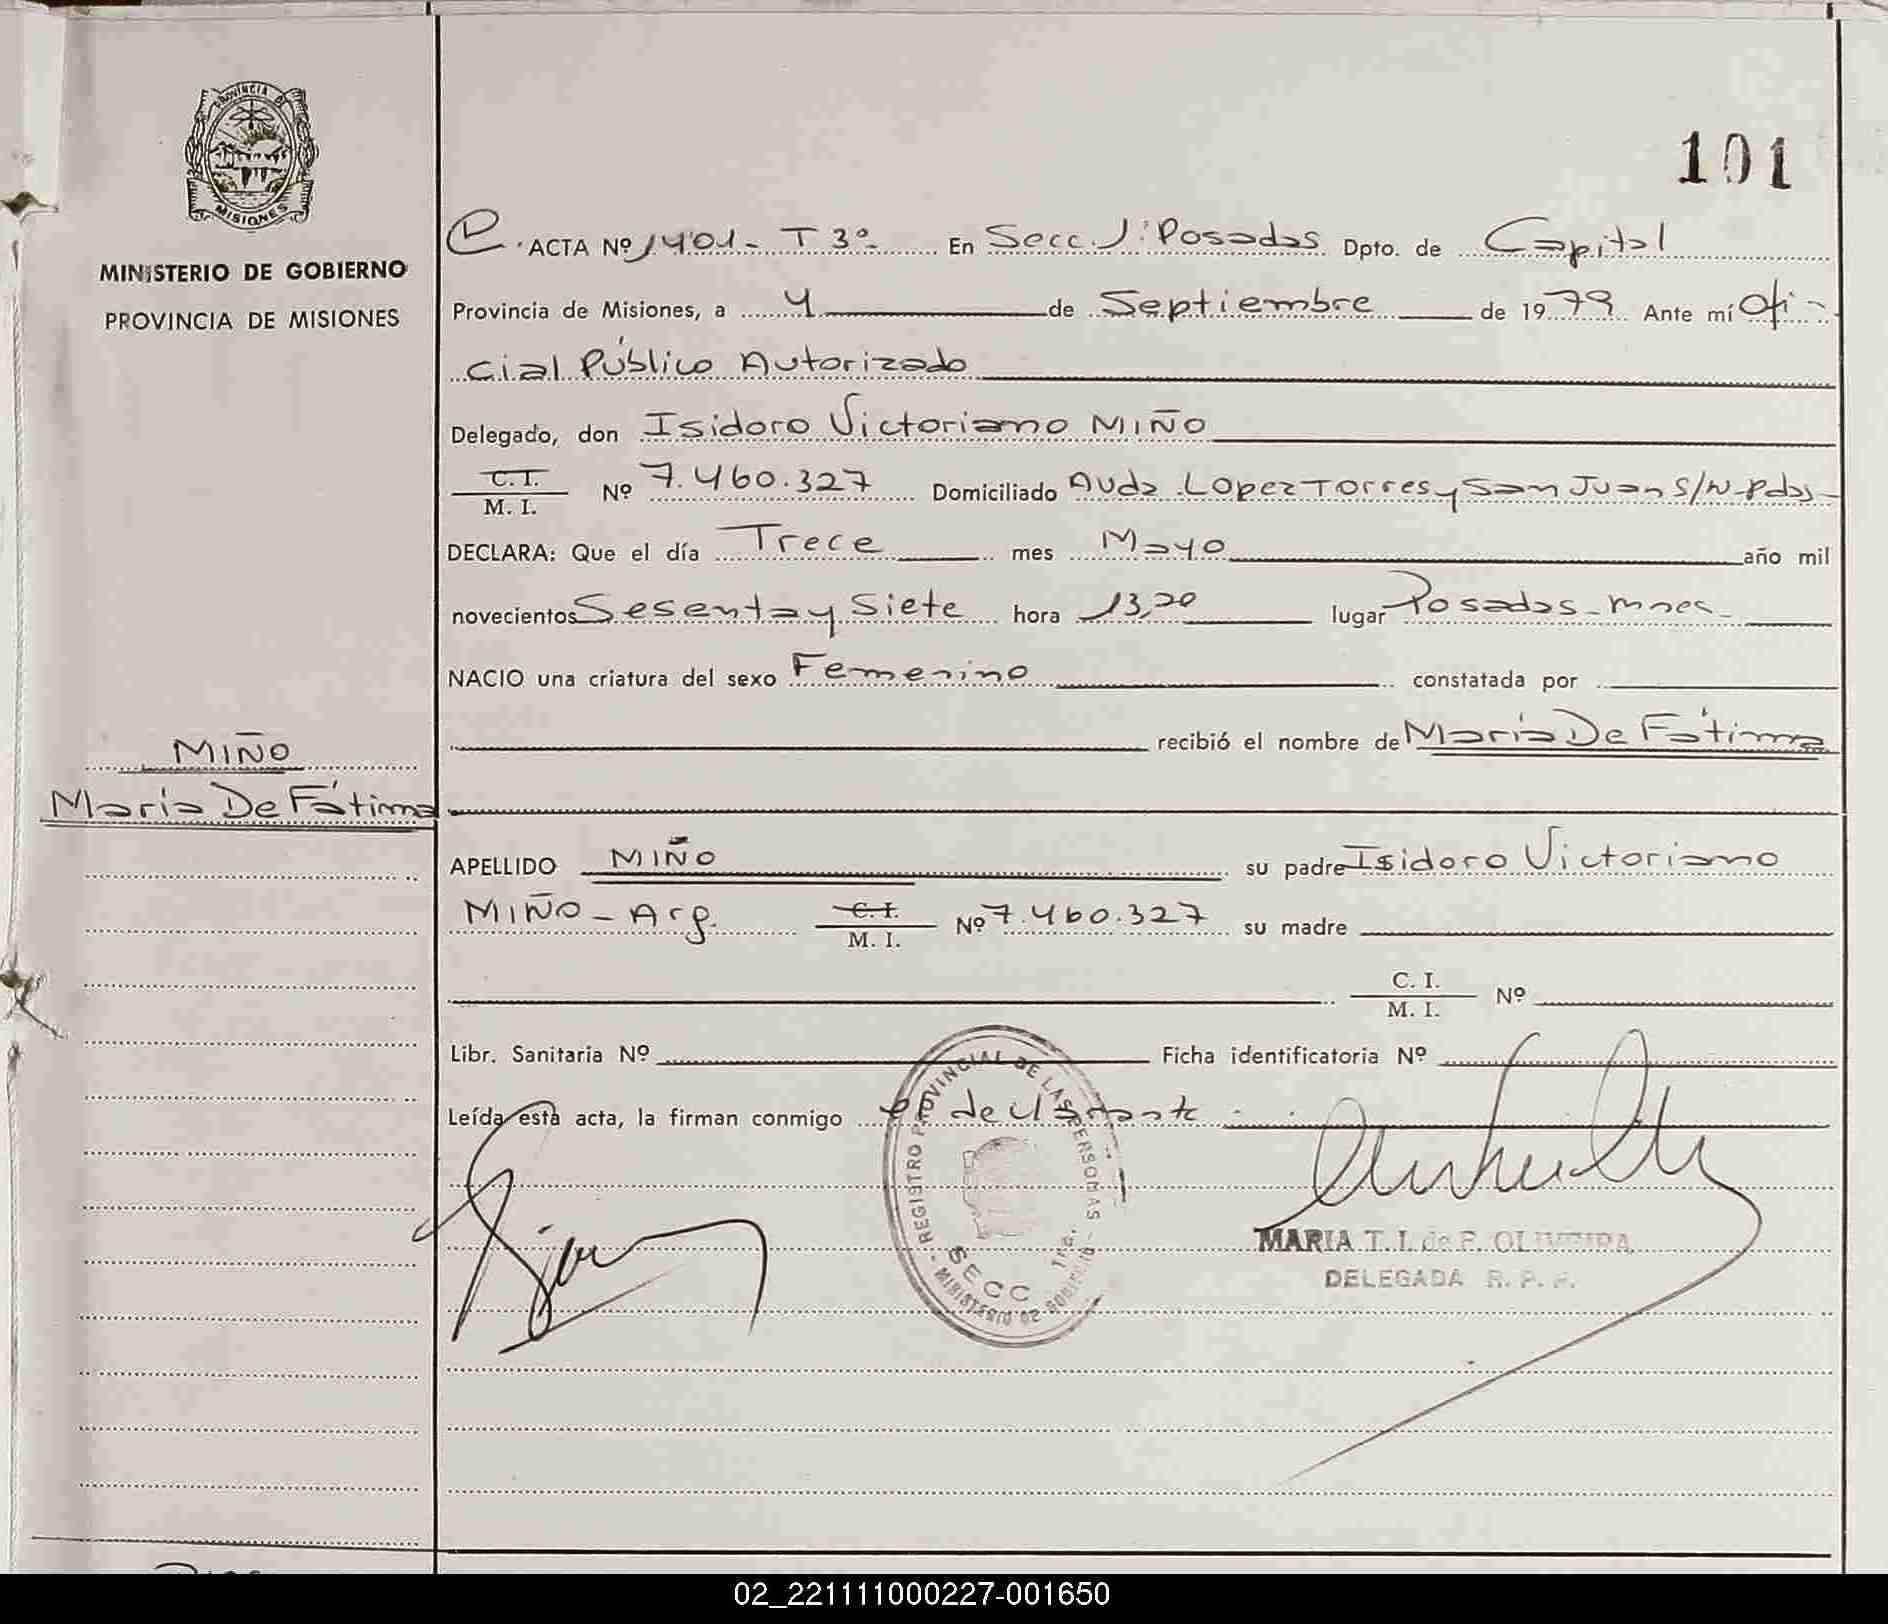 PROVINCIA DE
MISIONES
MINISTERIO DE GOBIERNO
PROVINCIA DE MISIONES
MIÑO
María De Fátima
101
ACTA Nº 1401- T 3º En Secc. 1ª Posadas Dpto. de Capital
Provincia de Misiones, a 4 de Septiembre de 1979 Ante mí Ofi-
cial Público Autorizado
Delegado, don Isidoro Victoriano MIÑO
C. I.
M. I. Nº 7.460.327 Domiciliado Avda Lopez Torres y San Juan S/N-Pdas-
DECLARA: Que el día Trece mes Mayo año mil
novecientos Sesenta y Siete hora 13,20 lugar Posadas-Mnes-
NACIO una criatura del sexo Femenino constatada por
recibió el nombre de María De Fátima
APELLIDO MIÑO su padre Isidoro Victoriano
MIÑO - Arg. C. I.
M. I. Nº 7.460.327 su madre
C. I.
M. I. Nº
Libr. Sanitaria Nº Ficha identificatoria Nº
Leída esta acta, la firman conmigo el declarante
REGISTRO PROVINCIAL DE LAS PERSONAS - MINISTERIO DE GOBIERNO -
SECC 1ra.
MARIA T. I. de F. OLIVEIRA
DELEGADA R. P. P.
02_221111000227-001650